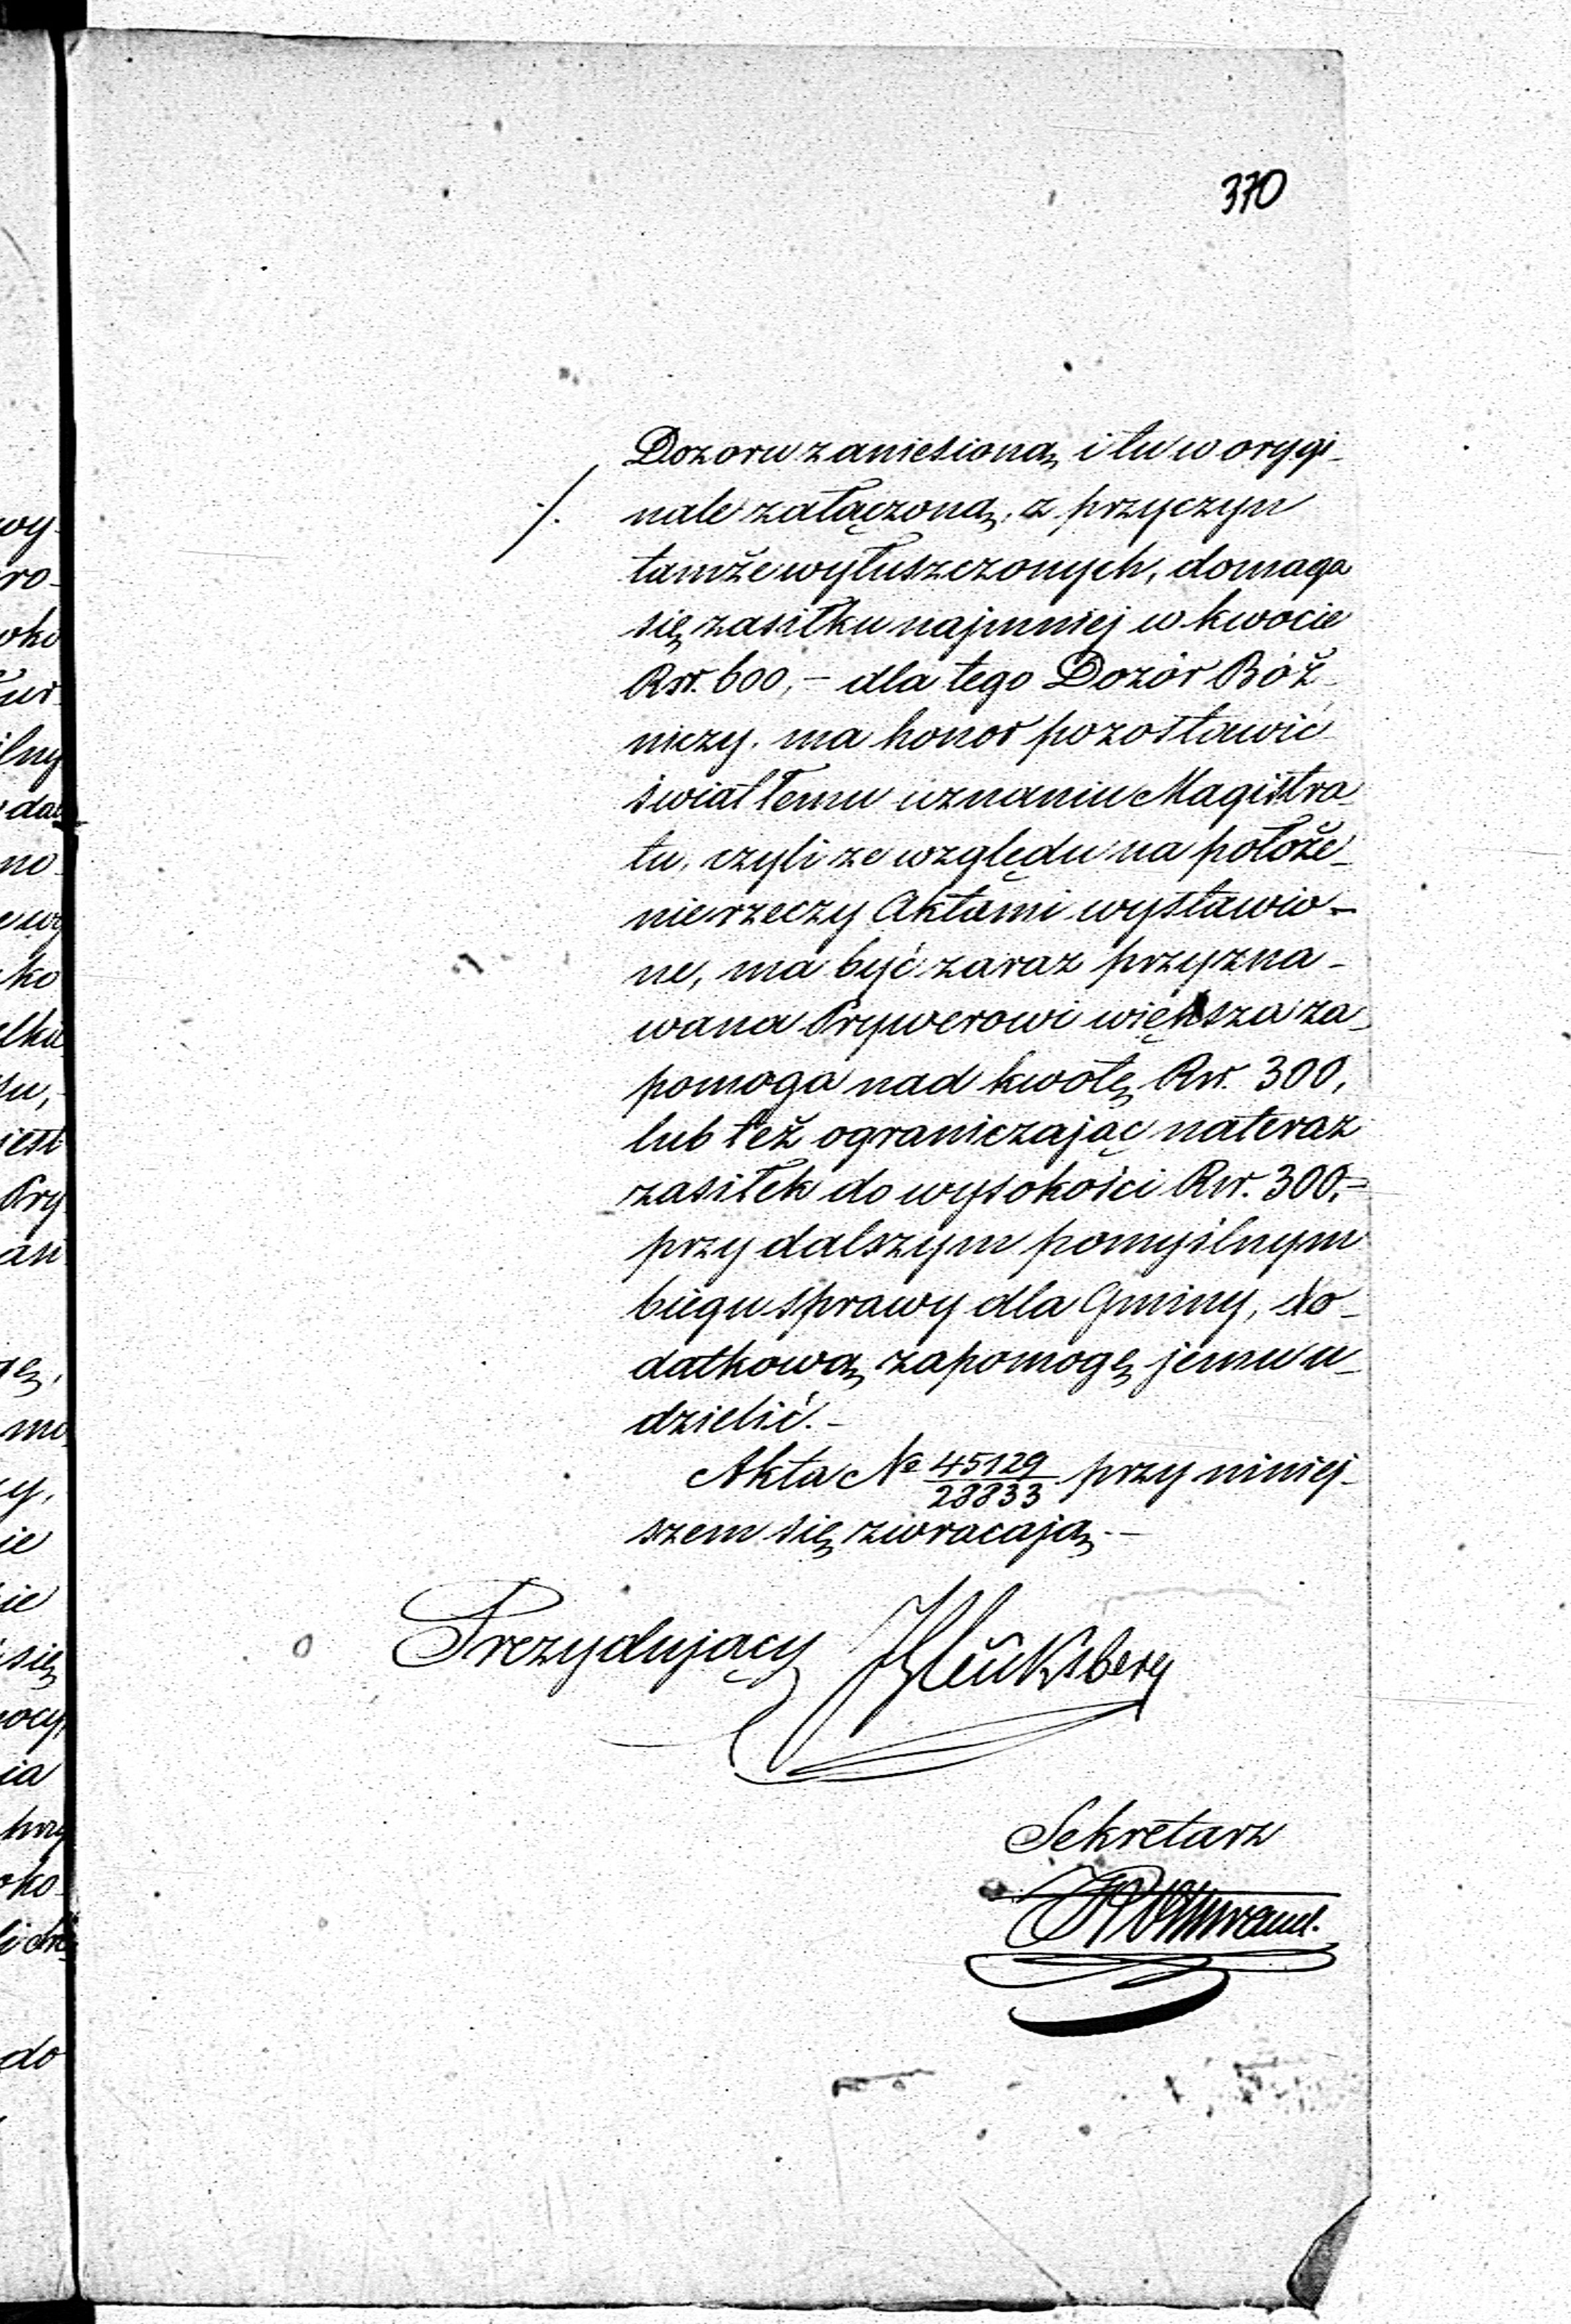 370
Dozoru zaniesioną i tu w orygi-
nale załączoną, z przyczyn
tamże wyłuszczonych, domaga
się zasiłku najmniej w kwocie
Rsr. 600,- dla tego Dozór Bóż-
niczy, ma honor pozostawić
światłemu uznaniu Magistra-
tu, czyli ze względu na położe-
nie rzeczy Aktami wystawio-
ne, ma być zaraz przyzna-
wana Prywerowi większa za-
pomoga nad kwotę Rsr. 300,
lub też ograniczając nateraz
zasiłek do wysokości Rsr. 300,-
przy dalszym pomyślnym
biegu sprawy dla Gminy, do-
datkową zapomogę jemu u-
dzielić.-
Akta № 45129/28833 przy niniej-
szem się zwracają.-
Prezydujący Glücksberg
Sekretarz